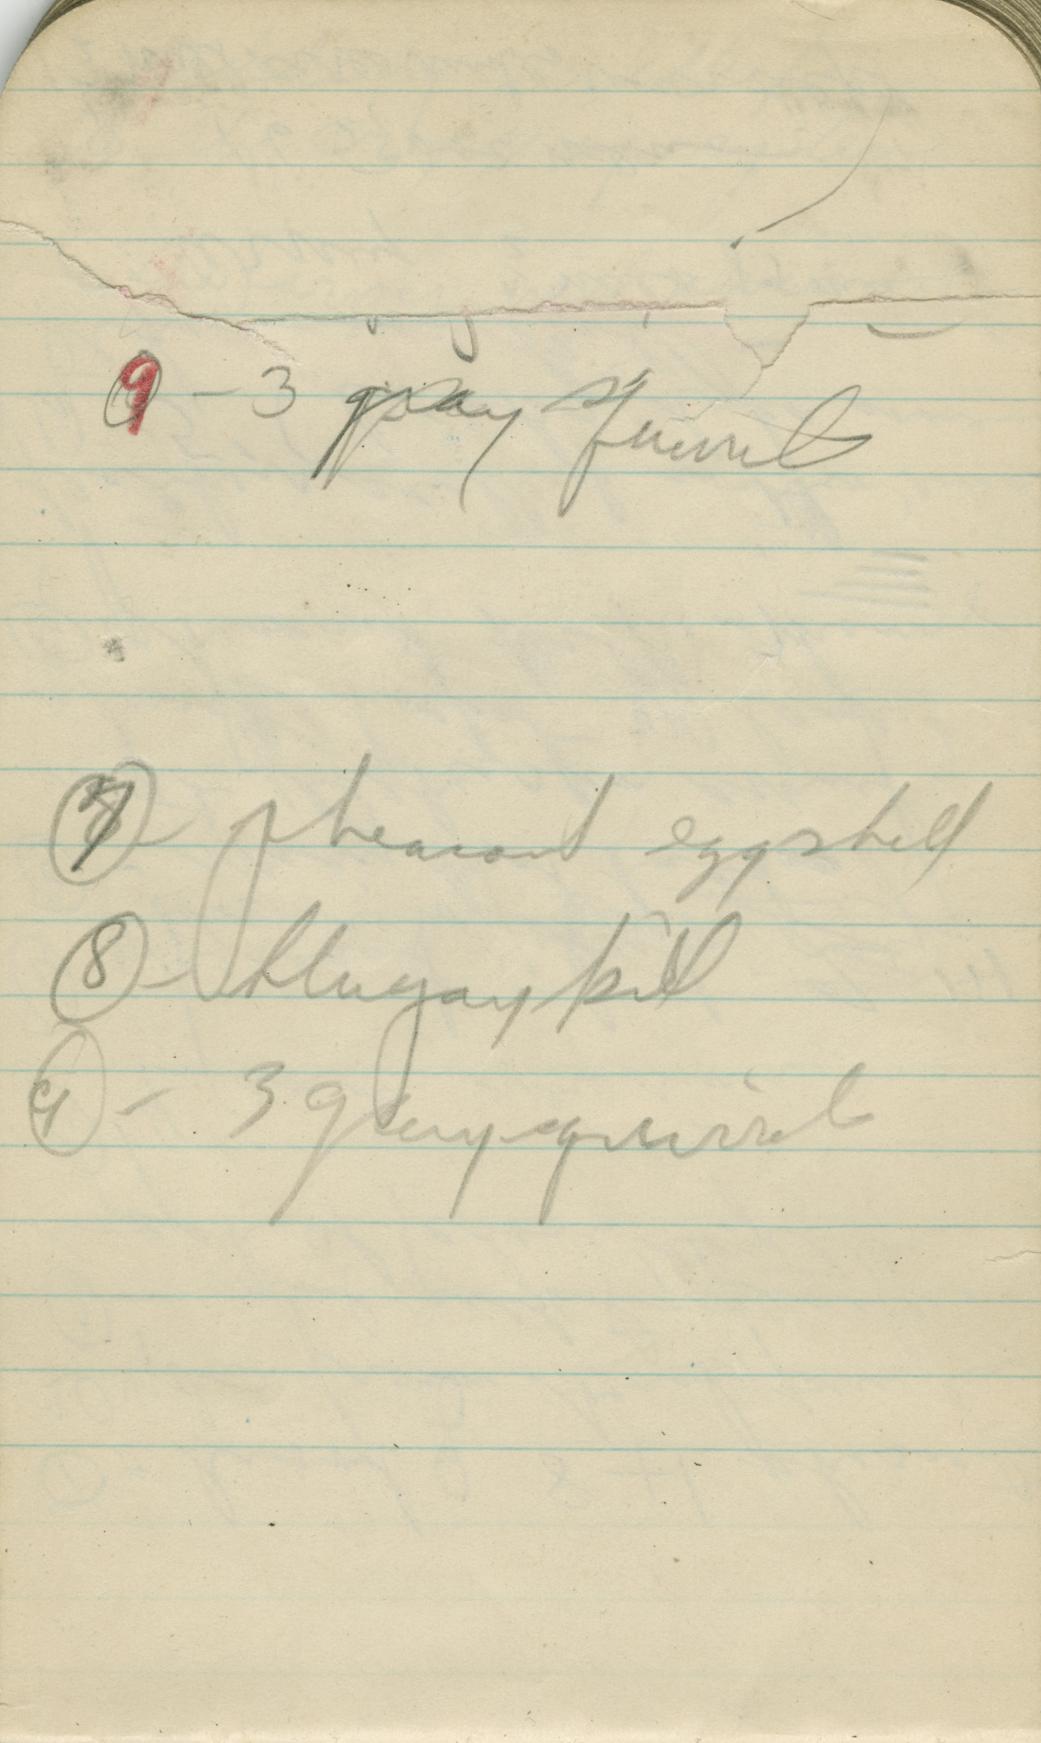 9 - 3 gray squirrels
7 - pheasant eggshell
8 - bluejay kill
9 - 3 gray squirrels